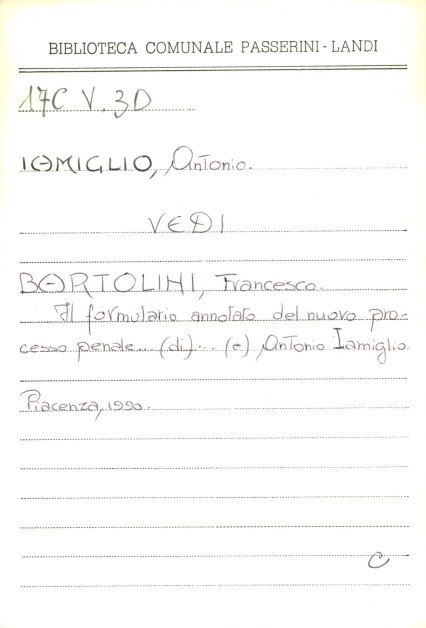 BIBLIOTECA COMUNALE PASSERINI - LANDI
17C V. 30
IAMIGLIO, Antonio.
VEDI
BARTOLINI, Francesco.
Il formulario annotato del nuovo pro-
cesso penale... (di)... (e) Antonio Iamiglio
Piacenza, 1990.
C